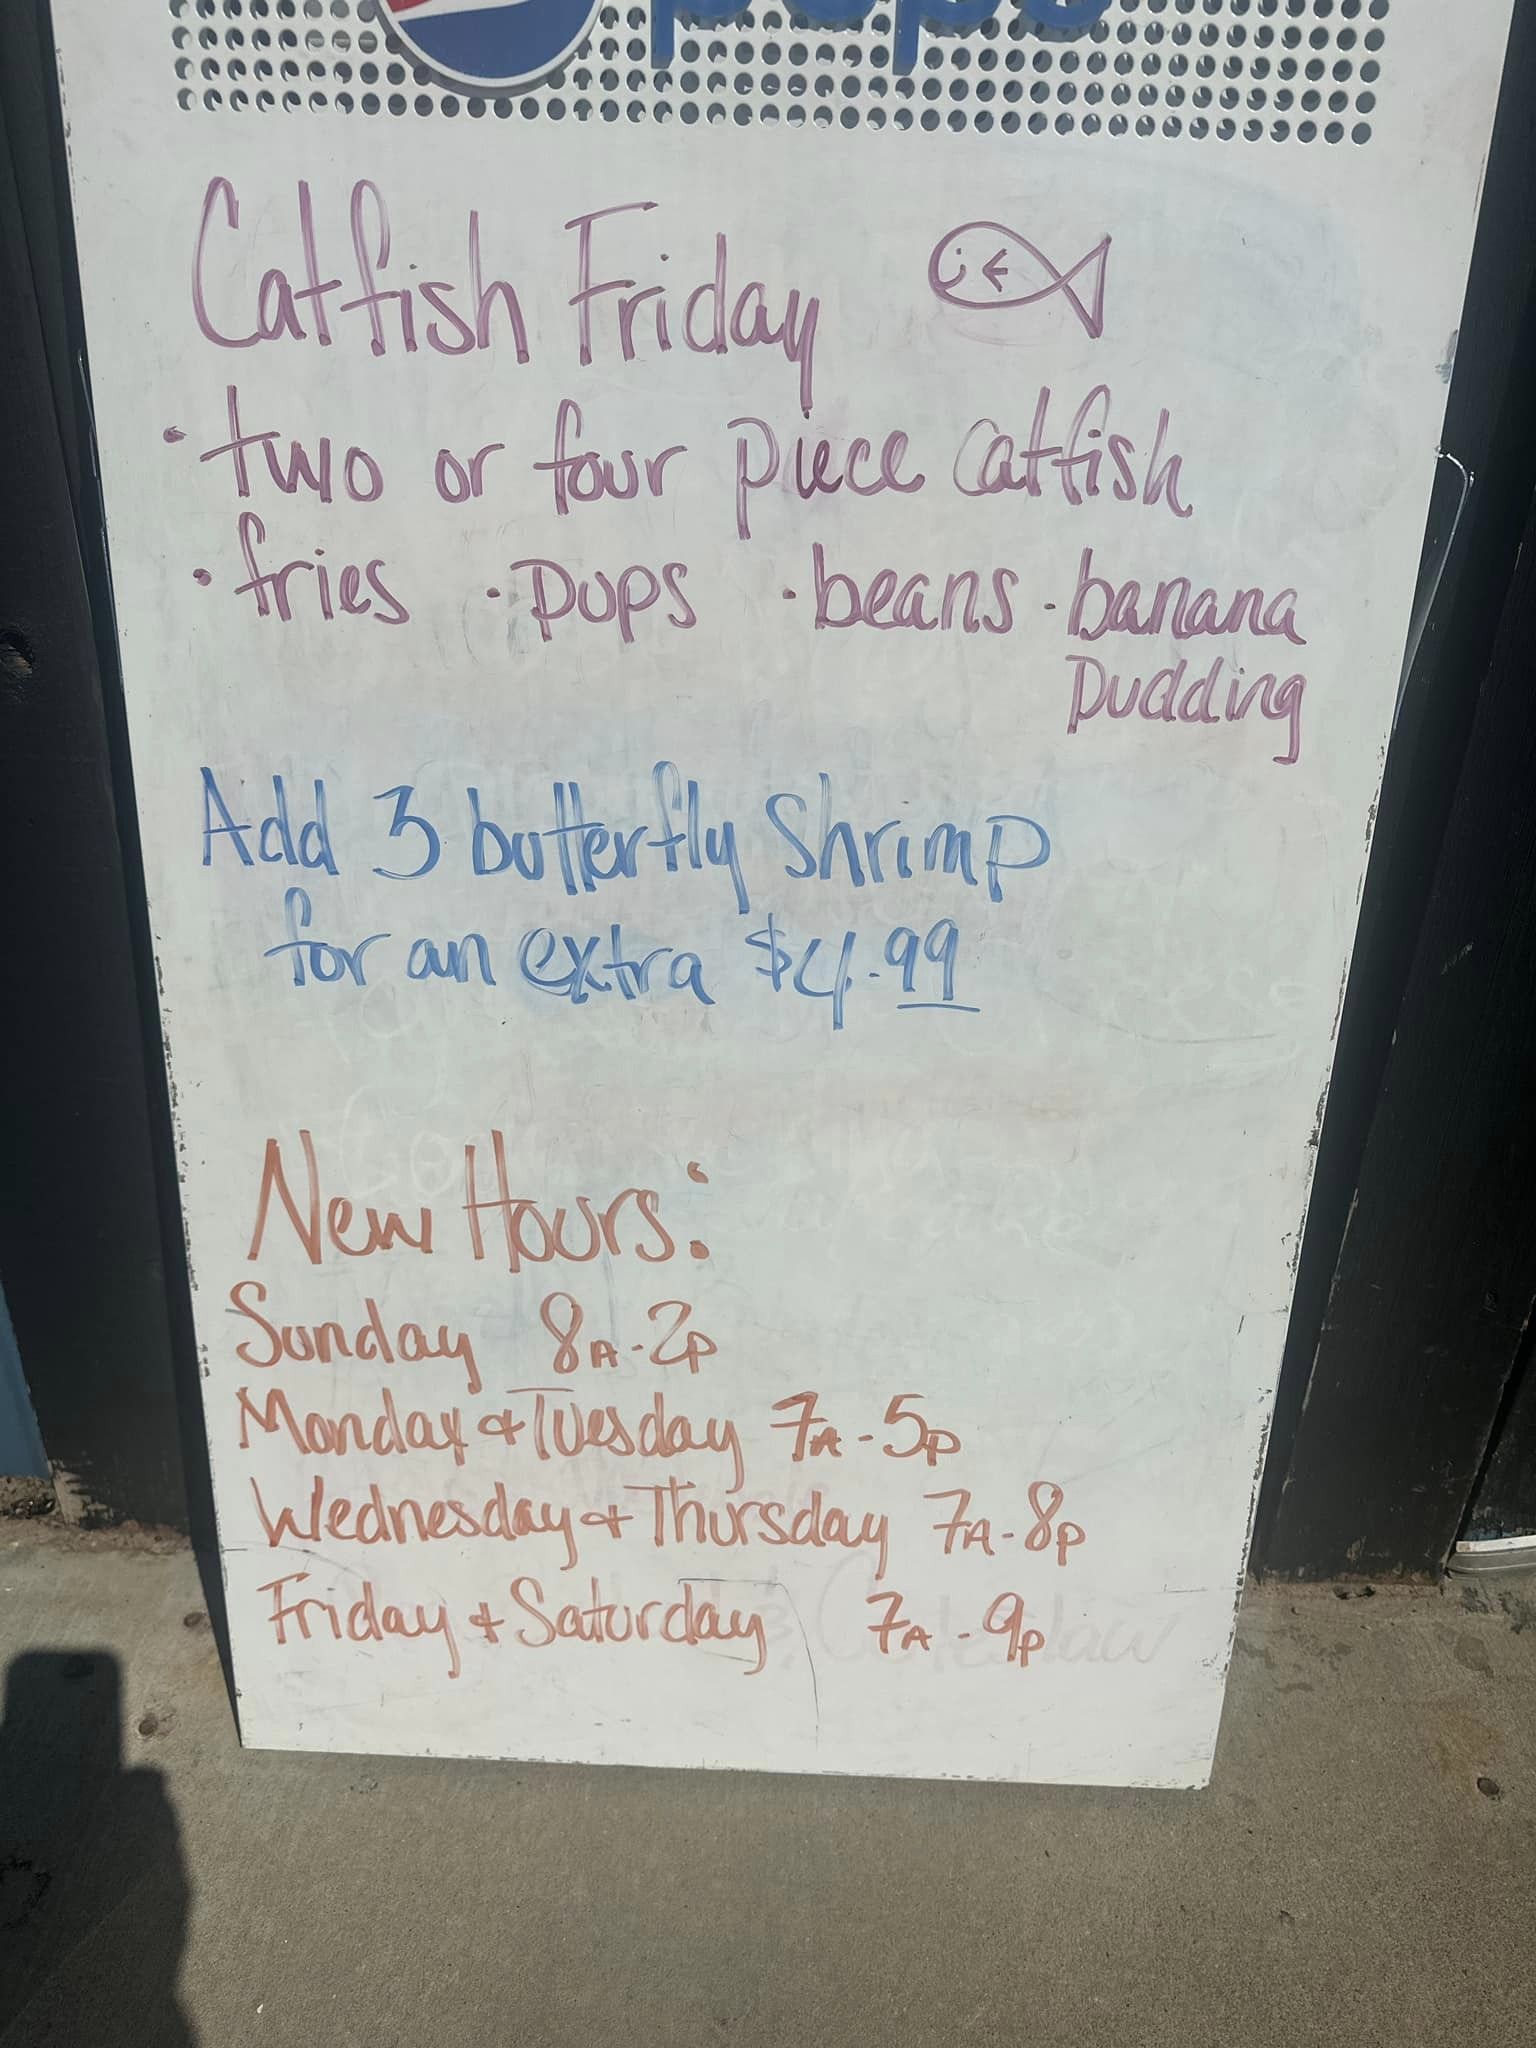 pepsi
Catfish Friday
· two or four piece catfish
· fries · pups · beans · banana
pudding
Add 3 butterfly shrimp
for an extra $4.99
New Hours:
Sunday 8A-2P
Monday & Tuesday 7A-5P
Wednesday & Thursday 7A-8P
Friday & Saturday 7A-9P
Coleslaw